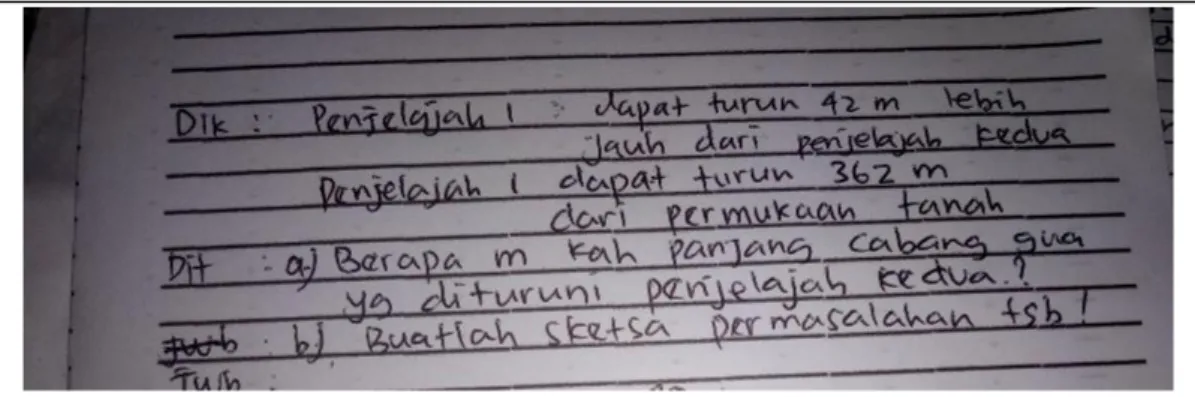 Dik : Penjelajah 1 : dapat turun 42 m lebih
jauh dari penjelajah kedua
Penjelajah 1 dapat turun 362 m
dari permukaan tanah
Dit : a) Berapa m kah panjang cabang gua
yg dituruni penjelajah kedua.?
Jwb : b) Buatlah sketsa permasalahan tsb!
Jwb :